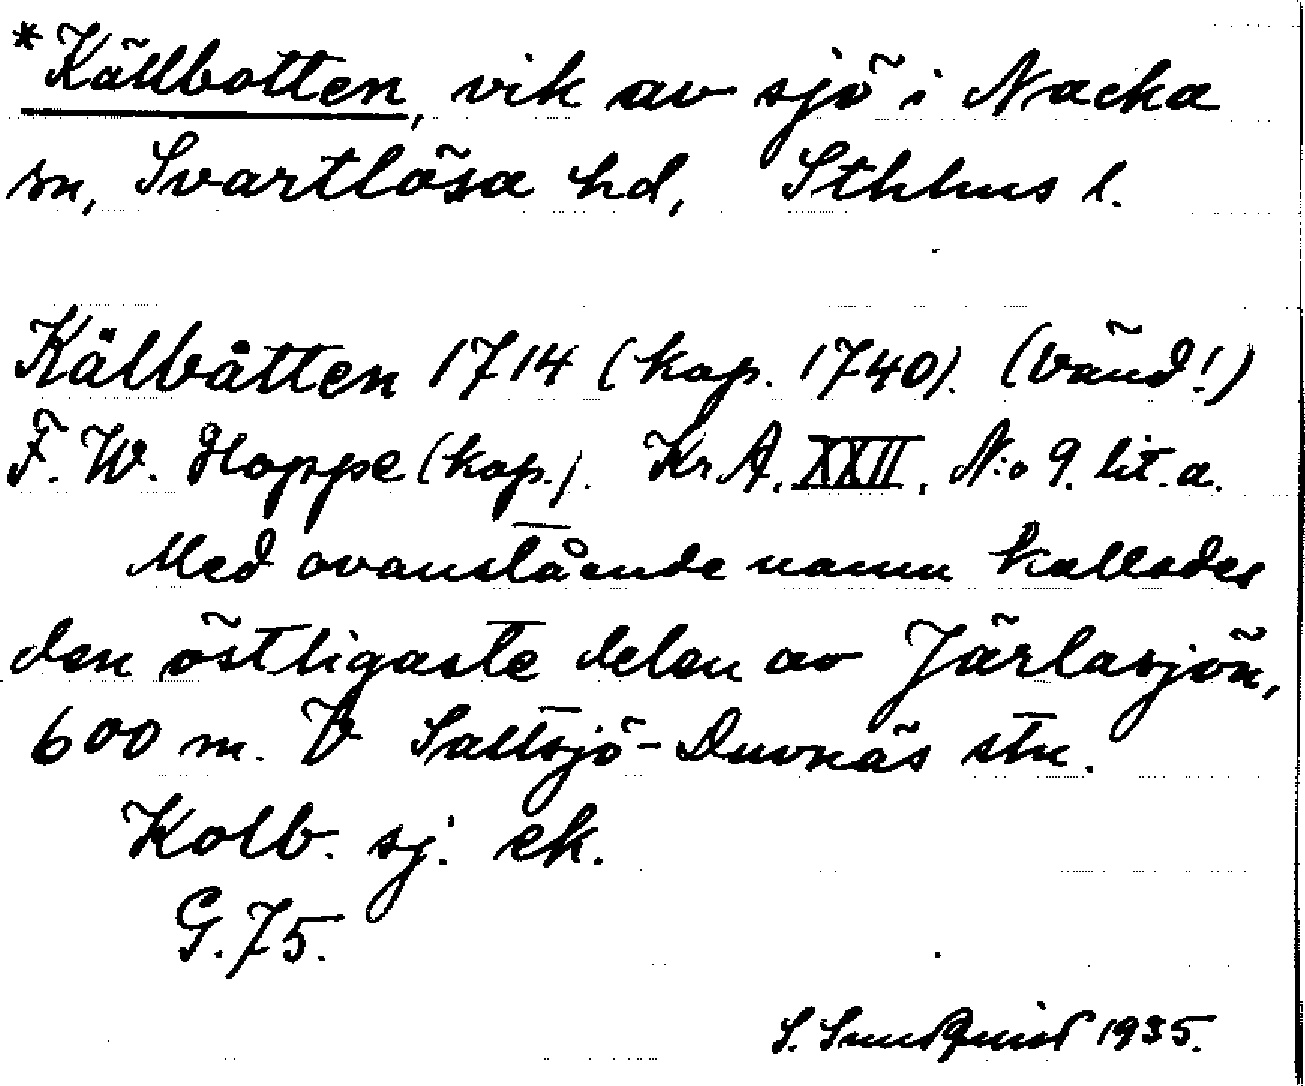 *Källbotten, vik av sjö i Nacka
sn, Svartlösa hd, Sthlms l.
Kälbåtten 1714 (kop. 1740). (Vänd!)
F. W. Hoppe (kop.). Kr A. XXII, N:o 9. lit. a.
Med ovanstående namn kallades
den östligaste delen av Järlasjön,
600 m. V Saltsjö-Duvnäs stn.
Kolb. sj. ek.
G. 75.
S. Sundquist 1935.